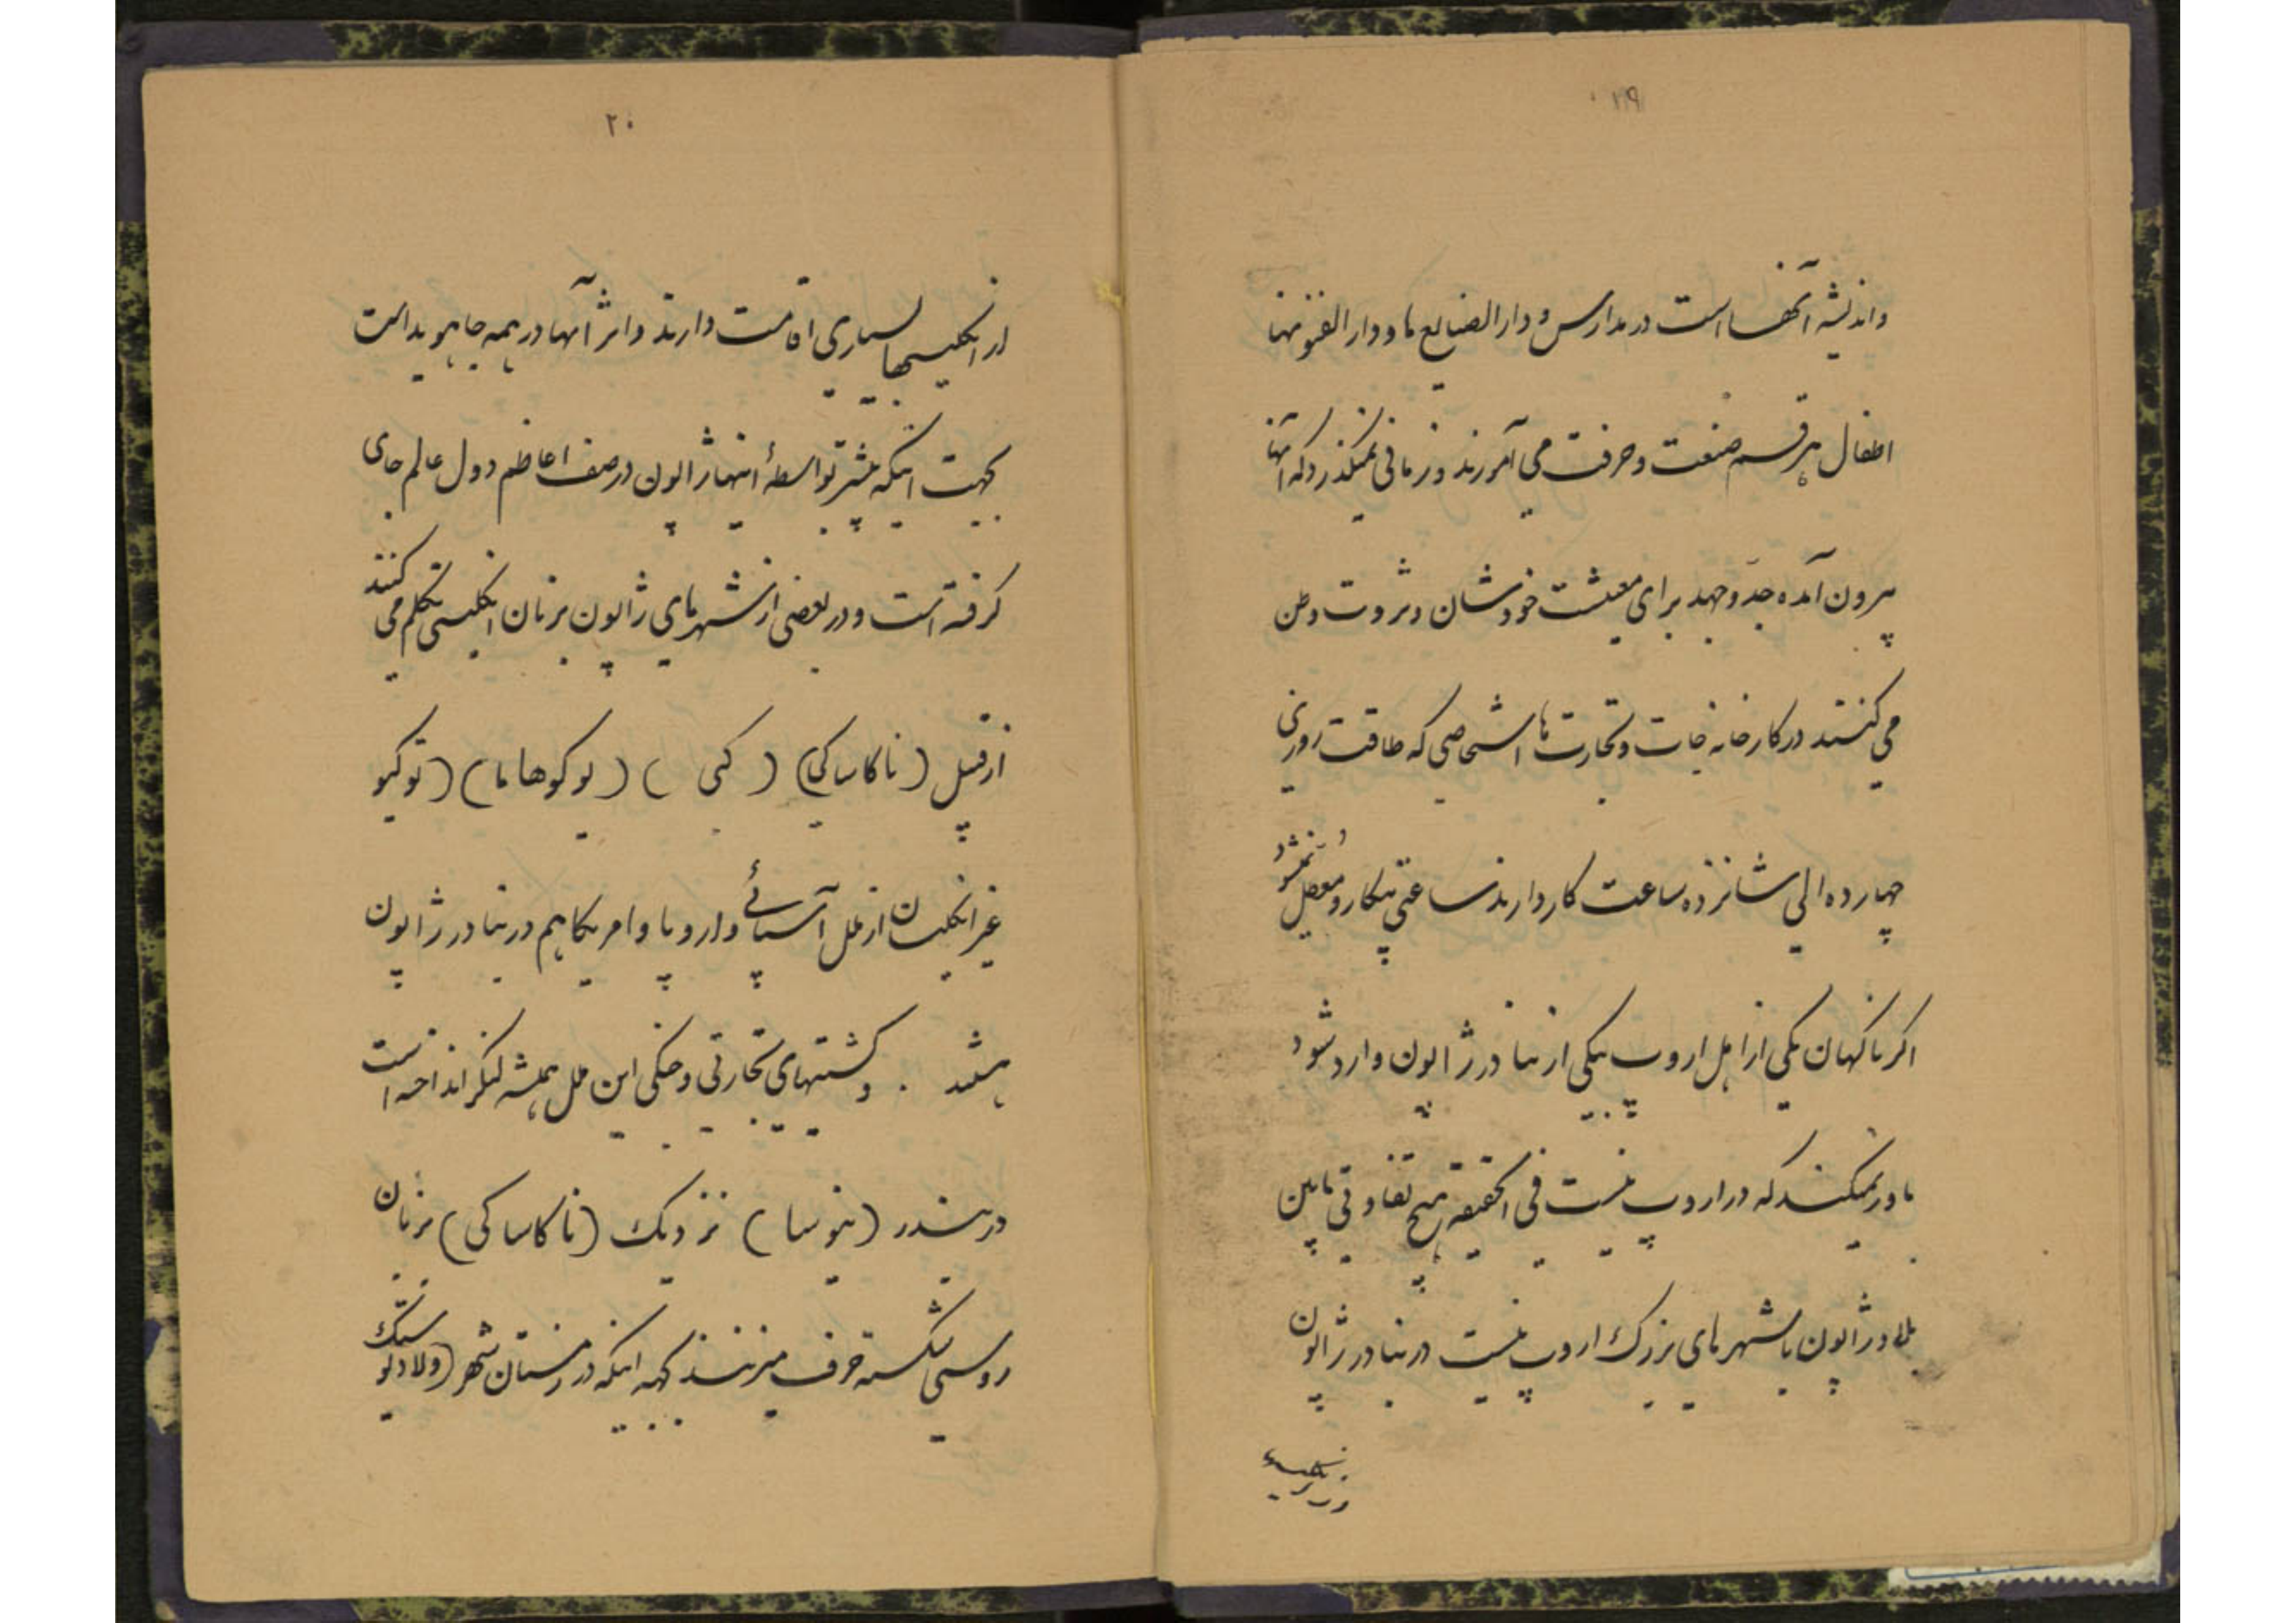 ۱۹
و اندیشه آنها است در مدارس و دارالصنایع ها و دارالفنونها
اطفال هر قسم صنعت و حرفت می آموزند و زمانی نمیگذرد که آنها
بیرون آمده جدّ و جهد برای معیشت خودشان و ثروت وطن
می کنند در کارخانه جات و تجارت ها اشخاصی که طاقت روزی
چهارده الی شانزده ساعت کار دارند ساعتی بیکار و معطل نمیشود
اکر ناکهان یکی از اهل اروپ بیکی از بنادر ژاپون وارد شود
باور نمیکند که در اروپ نیست فی الحقیقه هیچ تفاوتی مابین
بلاد ژاپون با شهرهای بزرک اروپ نیست در بنادر ژاپون
۲۰
از انکلیسیها بسیاری اقامت دارند و اثر آنها در همه جا هویداست
بجهت اینکه بیشتر بواسطهٔ اینها ژاپون در صف اعاظم دول عالم جای
کرفته است و در بعضی از شهرهای ژاپون بزبان انکلیسی تکلم می کنند
از قبیل (ناکاساکی) (کبی) (یوکوهاما) (توکیو
غیر انکلیسان از ملل آسیائی و اروپا و امریکا هم در بنادر ژاپون
هستند . و کشتیهای تجارتی و جنکی این ملل همیشه لنکر انداخته است
در بندر (ینوسا) نزدیک (ناکاساکی) بزبان
روسی شکسته حرف میزنند بجهه اینکه در زمستان شهر (ولادیوستک